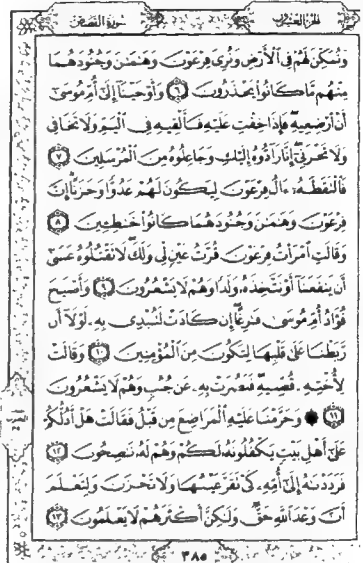 الجزء العشرون
سورة القصص
وَنُمَكِّنَ لَهُمْ فِي الْأَرْضِ وَنُرِيَ فِرْعَوْنَ وَهَامَانَ وَجُنُودَهُمَا
مِنْهُم مَّا كَانُوا يَحْذَرُونَ ٦ وَأَوْحَيْنَا إِلَىٰ أُمِّ مُوسَىٰ
أَنْ أَرْضِعِيهِ فَإِذَا خِفْتِ عَلَيْهِ فَأَلْقِيهِ فِي الْيَمِّ وَلَا تَخَافِي
وَلَا تَحْزَنِي إِنَّا رَادُّوهُ إِلَيْكِ وَجَاعِلُوهُ مِنَ الْمُرْسَلِينَ ٧
فَالْتَقَطَهُ ءَالُ فِرْعَوْنَ لِيَكُونَ لَهُمْ عَدُوًّا وَحَزَنًا إِنَّ
فِرْعَوْنَ وَهَامَانَ وَجُنُودَهُمَا كَانُوا خَاطِئِينَ ٨
وَقَالَتِ امْرَأَتُ فِرْعَوْنَ قُرَّتُ عَيْنٍ لِّي وَلَكَ لَا تَقْتُلُوهُ عَسَىٰ
أَن يَنفَعَنَا أَوْ نَتَّخِذَهُ وَلَدًا وَهُمْ لَا يَشْعُرُونَ ٩ وَأَصْبَحَ
فُؤَادُ أُمِّ مُوسَىٰ فَارِغًا إِن كَادَتْ لَتُبْدِي بِهِ لَوْلَا أَن
رَّبَطْنَا عَلَىٰ قَلْبِهَا لِتَكُونَ مِنَ الْمُؤْمِنِينَ ١٠ وَقَالَتْ
لِأُخْتِهِ قُصِّيهِ فَبَصُرَتْ بِهِ عَن جُنُبٍ وَهُمْ لَا يَشْعُرُونَ
١١ وَحَرَّمْنَا عَلَيْهِ الْمَرَاضِعَ مِن قَبْلُ فَقَالَتْ هَلْ أَدُلُّكُمْ
عَلَىٰ أَهْلِ بَيْتٍ يَكْفُلُونَهُ لَكُمْ وَهُمْ لَهُ نَاصِحُونَ ١٢
فَرَدَدْنَاهُ إِلَىٰ أُمِّهِ كَيْ تَقَرَّ عَيْنُهَا وَلَا تَحْزَنَ وَلِتَعْلَمَ
أَنَّ وَعْدَ اللَّهِ حَقٌّ وَلَٰكِنَّ أَكْثَرَهُمْ لَا يَعْلَمُونَ ١٣
٣٨٥